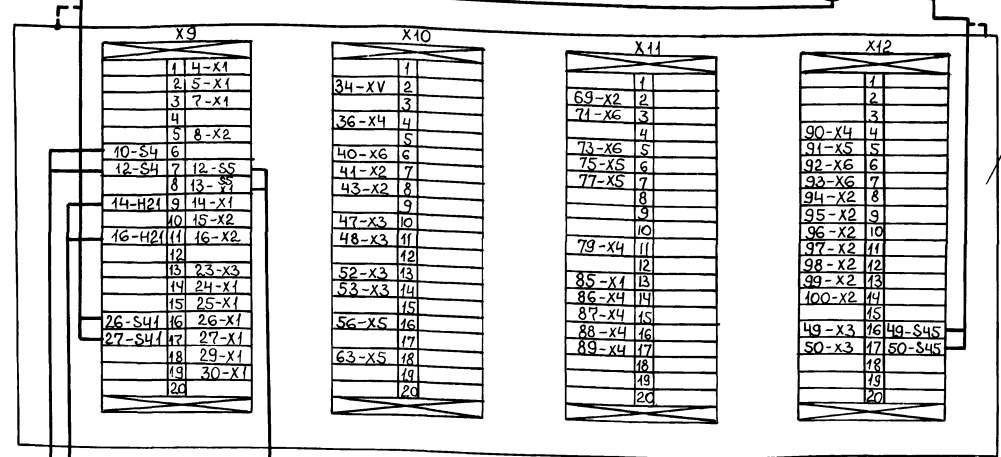 X9
1 4-X1
2 5-X1
3 7-X1
4
5 8-X2
10-S4 6
12-S4 7 12-S5
8 13-S5 X1
14-H21 9 14-X1
10 15-X2
16-H21 11 16-X2
12
13 23-X3
14 24-X1
15 25-X1
26-S41 16 26-X1
27-S41 17 27-X1
18 29-X1
19 30-X1
20
X10
1
34-XV 2
3
36-X4 4
5
40-X6 6
41-X2 7
43-X2 8
9
47-X3 10
48-X3 11
12
52-X3 13
53-X3 14
15
56-X5 16
17
63-X5 18
19
20
X11
1
69-X2 2
71-X6 3
4
73-X6 5
75-X5 6
77-X5 7
8
9
10
79-X4 11
12
85-X1 13
86-X4 14
87-X4 15
88-X4 16
89-X4 17
18
19
20
X12
1
2
3
90-X4 4
91-X5 5
92-X6 6
93-X6 7
94-X2 8
95-X2 9
96-X2 10
97-X2 11
98-X2 12
99-X2 13
100-X2 14
15
49-X3 16 49-S45
50-X3 17 50-S45
18
19
20